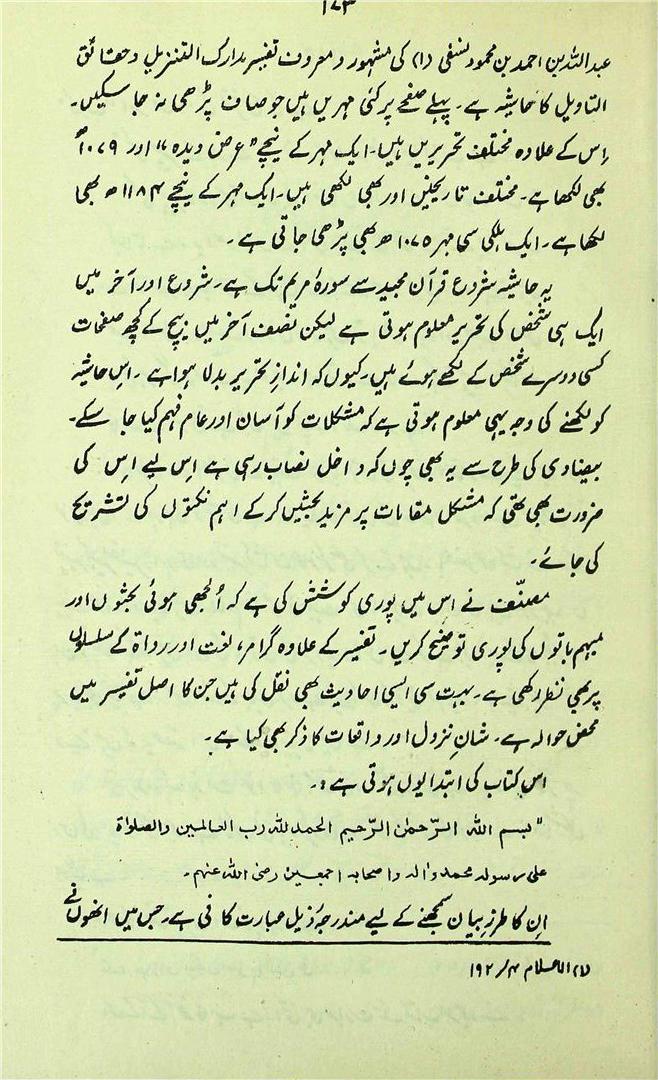 ۱۷۳
عبداللہ بن احمد بن محمود نسفی (۱) کی مشہور و معروف تفسیر مدارک التنزیل و حقائق
التاویل کا حاشیہ ہے۔ پہلے صفحے پر کئی مہریں ہیں جو صاف پڑھی نہ جا سکیں۔
اِس کے علاوہ مختلف تحریریں ہیں۔ ایک مہر کے نیچے "عرض دیدہ" اور ۱۰۷۹ھ
بھی لکھا ہے۔ مختلف تاریخیں اور بھی لکھی ہیں۔ ایک مہر کے نیچے ۱۱۸۴ھ بھی
لکھا ہے۔ ایک ہلکی سی مہر ۱۰۷۵ھ بھی پڑھی جاتی ہے۔
یہ حاشیہ شروع قرآن مجید سے سورۂ مریم تک ہے۔ شروع اور آخر میں
ایک ہی شخص کی تحریر معلوم ہوتی ہے لیکن نصف آخر میں بیچ کے کچھ صفحات
کسی دوسرے شخص کے لکھے ہوئے ہیں۔ کیوں کہ اندازِ تحریر بدلا ہوا ہے۔ اِس حاشیہ
کو لکھنے کی وجہ یہی معلوم ہوتی ہے کہ مشکلات کو آسان اور عام فہم کیا جا سکے۔
بیضاوی کی طرح سے یہ بھی چوں کہ داخل نصاب رہی ہے اس لیے اِس کی
ضرورت بھی تھی کہ مشکل مقامات پر مزید بحثیں کرکے اہم نکتوں کی تشریح
کی جائے۔
مصنّف نے اس میں پوری کوشش کی ہے کہ اُلجھی ہوئی بحثوں اور
مبہم باتوں کی پوری توضیح کریں۔ تفسیر کے علاوہ گرامر، لغت اور رواۃ کے سلسلوں
پر بھی نظر رکھی ہے۔ بہت سی ایسی احادیث بھی نقل کی ہیں جن کا اصل تفسیر میں
محض حوالہ ہے۔ شانِ نزول اور واقعات کا ذکر بھی کیا ہے۔
اس کتاب کی ابتدا یوں ہوتی ہے:۔
"بسم اللہ الرّحمٰن الرّحیم الحمد للہ رب العالمین والصلواۃ
علی رسولہ محمد وآلہ واصحابہ اجمعین رضی اللہ عنہم۔
اِن کا طرزِ بیان سمجھنے کے لیے مندرجۂ ذیل عبارت کافی ہے۔ جس میں انھوں نے
(۱) الاعلام ۴/ ۱۹۲